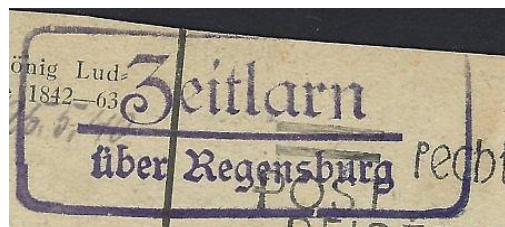 önig Lud=
1842—63
Zeitlarn
über Regensburg
recht
POST